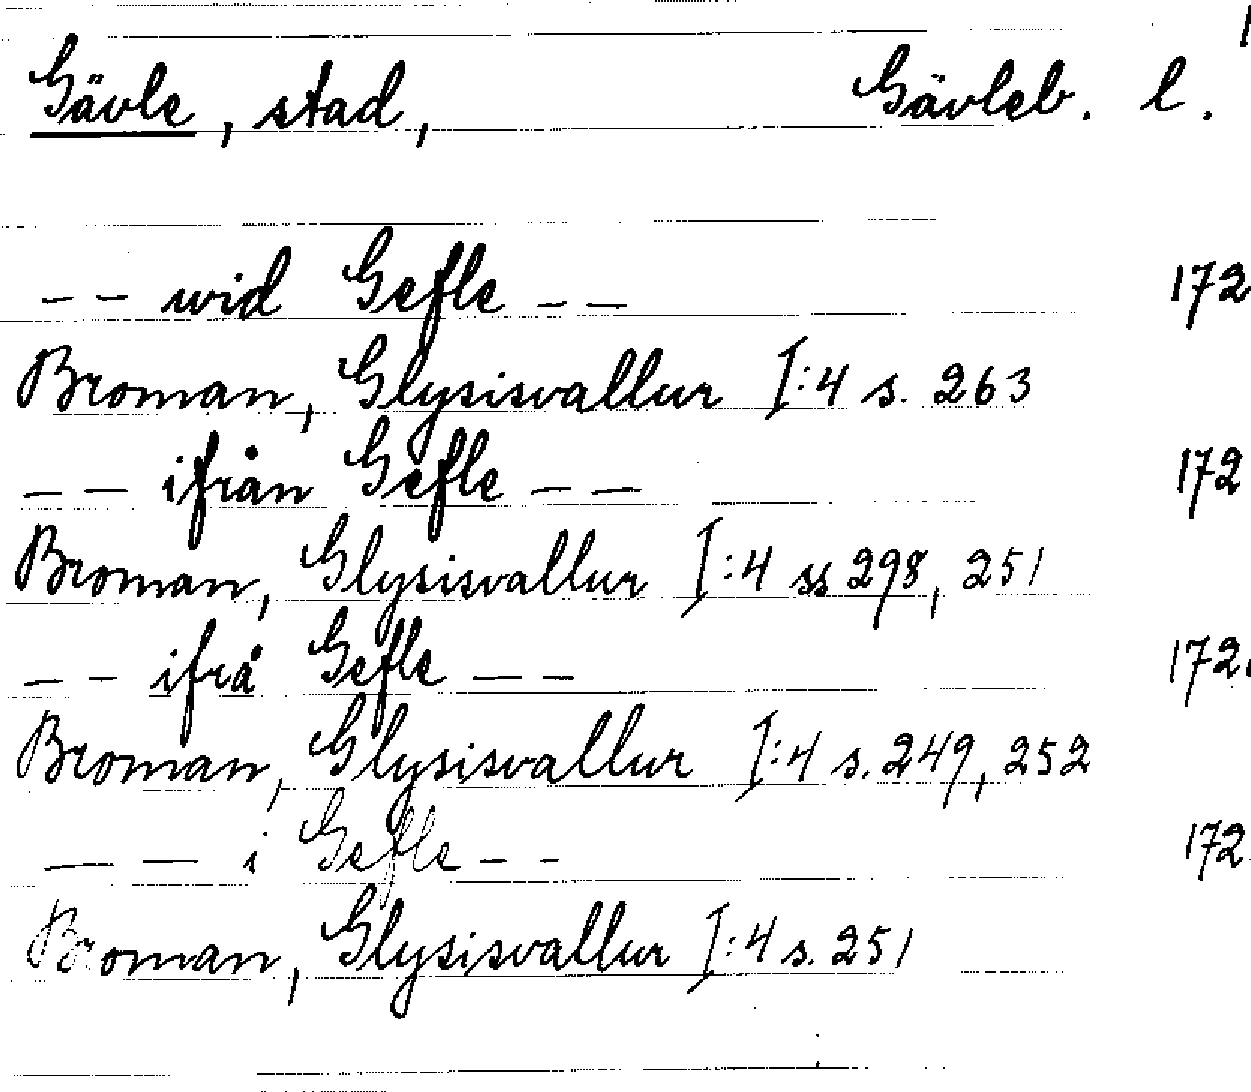 Gävle, stad, Gävleb. l.
-- wid Gefle -- 172
Broman, Glysisvallur I:4 s. 263
-- ifrån Gefle -- 172
Broman, Glysisvallur I:4 ss 298, 251
-- ifrå Gefle -- 172
Broman, Glysisvallur I:4 s. 249, 252
-- i Gefle -- 172
Broman, Glysisvallur I:4 s. 251